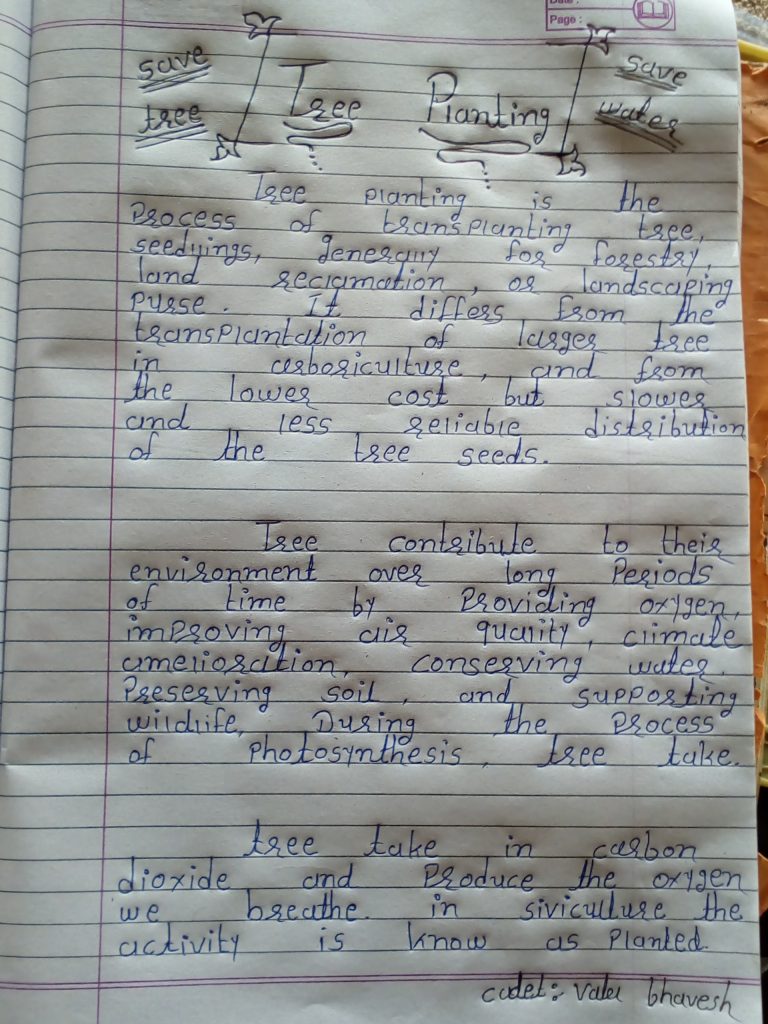 Date :
Page :
save tree
Tree Planting
save water
Tree planting is the
process of transplanting tree,
seedyings, generally for forestry,
land reclamation, or landscaping
purse. It differs from the
transplantation of larger tree
in arboriculture, and from
the lower cost but slower
and less reliable distribution
of the tree seeds.
Tree contribute to their
environment over long periods
of time by providing oxygen,
improving air quality, climate
amelioration, conserving water,
preserving soil, and supporting
wildlife, During the process
of photosynthesis, tree take.
tree take in carbon
dioxide and produce the oxygen
we breathe. in siviculture the
activity is know as planted.
cadet: bhavesh